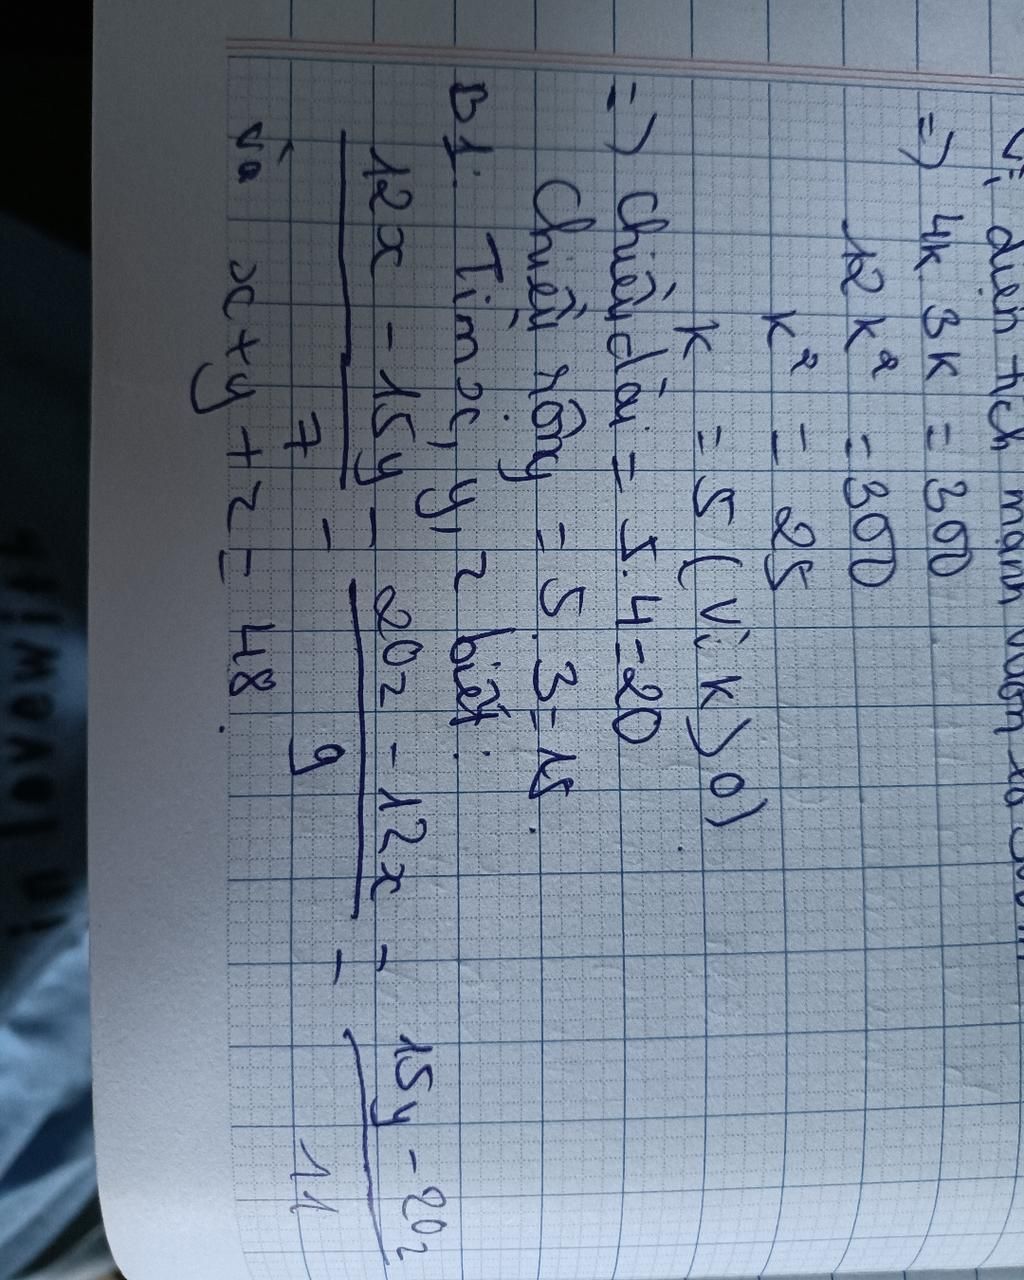 Vì diện tích mảnh vườn là 300 m
=) 4k. 3k = 300
12k² = 300
k² = 25
k = 5 (Vì k > 0)
=) Chiều dài = 5.4 = 20
Chiều rộng = 5.3 = 15.
B1: Tìm x, y, z biết:
12x - 15y / 7 = 20z - 12x / 9 = 15y - 20z / 11
và x + y + z = 48.
in love with